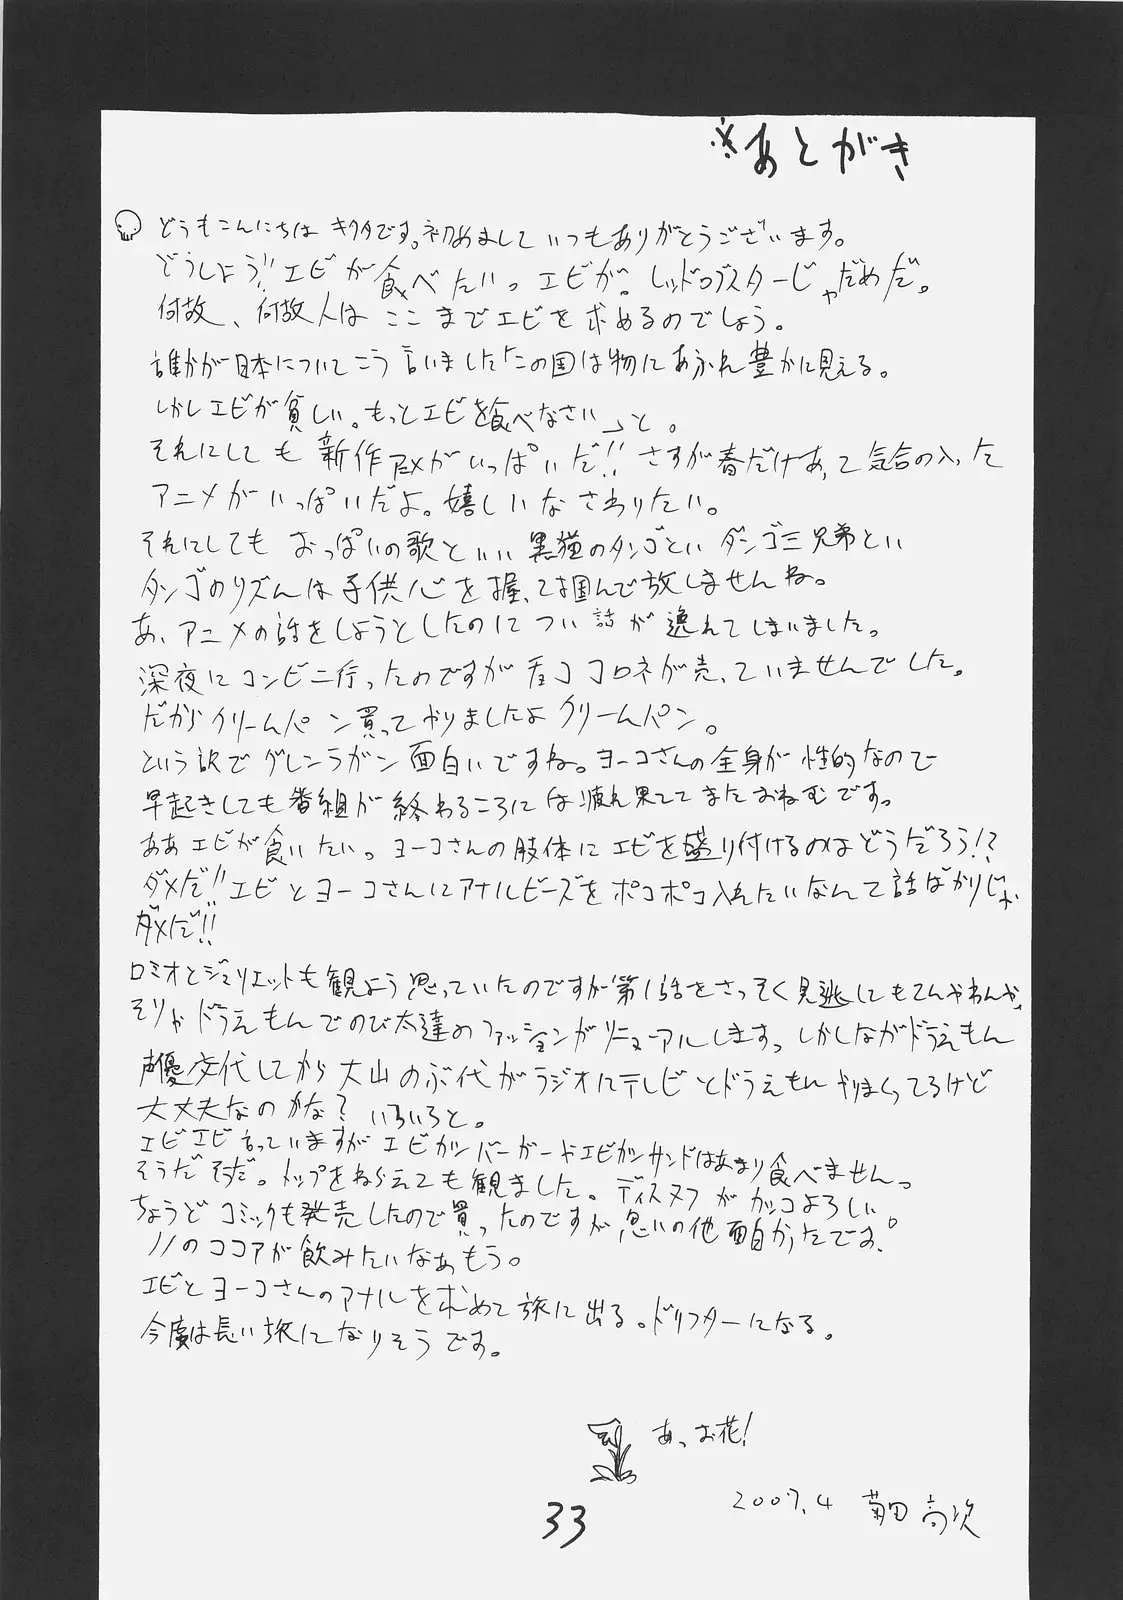 ※あとがき
どうもこんにちは キクタです。初めまして いつもありがとうございます。
どうしよう!!エビが食べたいっ エビが。レッドロブスターじゃだめだ。
何故、何故人は ここまでエビを求めるのでしょう。
誰かが日本についてこう言いました「この国は物にあふれ豊かに見える。
しかしエビが貧しい。もっとエビを食べなさい」と。
それにしても 新作アニメがいっぱいだ!! さすが春だけあって気合の入った
アニメがいっぱいだよ。嬉しいな さわりたい。
それにしても おっぱいの歌といい 黒猫のタンゴといい ダンゴ三兄弟といい
タンゴのリズムは子供心を握って掴んで放しませんね。
あ、アニメの話をしようとしたのについ話が逸れてしまいました。
深夜にコンビニ行ったのですがチョココロネが売っていませんでした。
だからクリームパン買ってやりましたよクリームパン。
という訳でグレンラガン面白いですね。ヨーコさんの全身が性的なので
早起きしても番組が終わるころには疲れ果ててまたおねむです。
ああエビが食いたい。ヨーコさんの肢体にエビを盛り付けるのはどうだろう!?
ダメだ!!エビとヨーコさんにアナルビーズをポコポコ入れたいなんて話ばかりじゃ
ダメだ!!
ロミオとジュリエットも観よう思っていたのですが第1話をさっそく見逃してもてんやわんや、
そりゃドラえもんでのび太達のファッションがリニューアルしますっ しかしながドラえもん
声優交代してから大山のぶ代がラジオにテレビとドラえもんやりまくってるけど
大丈夫なのかな? いろいろと。
エビエビ言っていますがエビカツバーガーやエビカツサンドはあまり食べませんっ
そうだそうだ。トップをねらえても観ました。ディスヌフがカッコよろしい
ちょうどコミックも発売したので買ったのですが思いの他面白かったです。
ノノのココアが飲みたいなぁもう。
エビとヨーコさんのアナルを求めて旅に出る。ドリフターになる。
今度は長い旅になりそうです。
あっお花!
2007.4 菊田高次
33